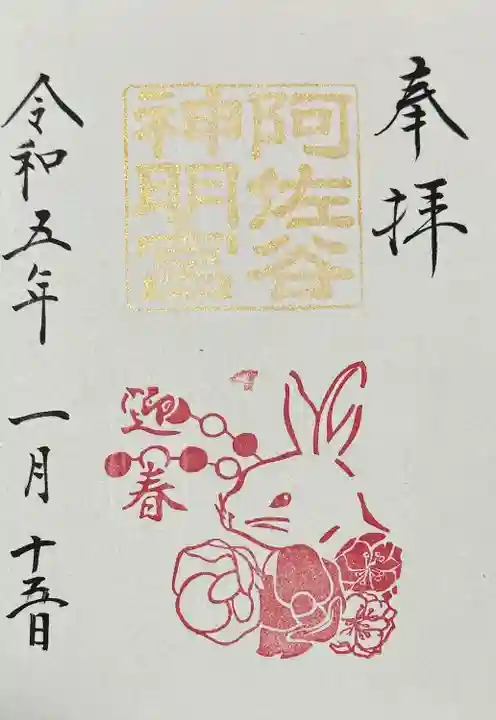 奉拝
阿佐谷
神明宮
迎春
令和五年 一月 十五日